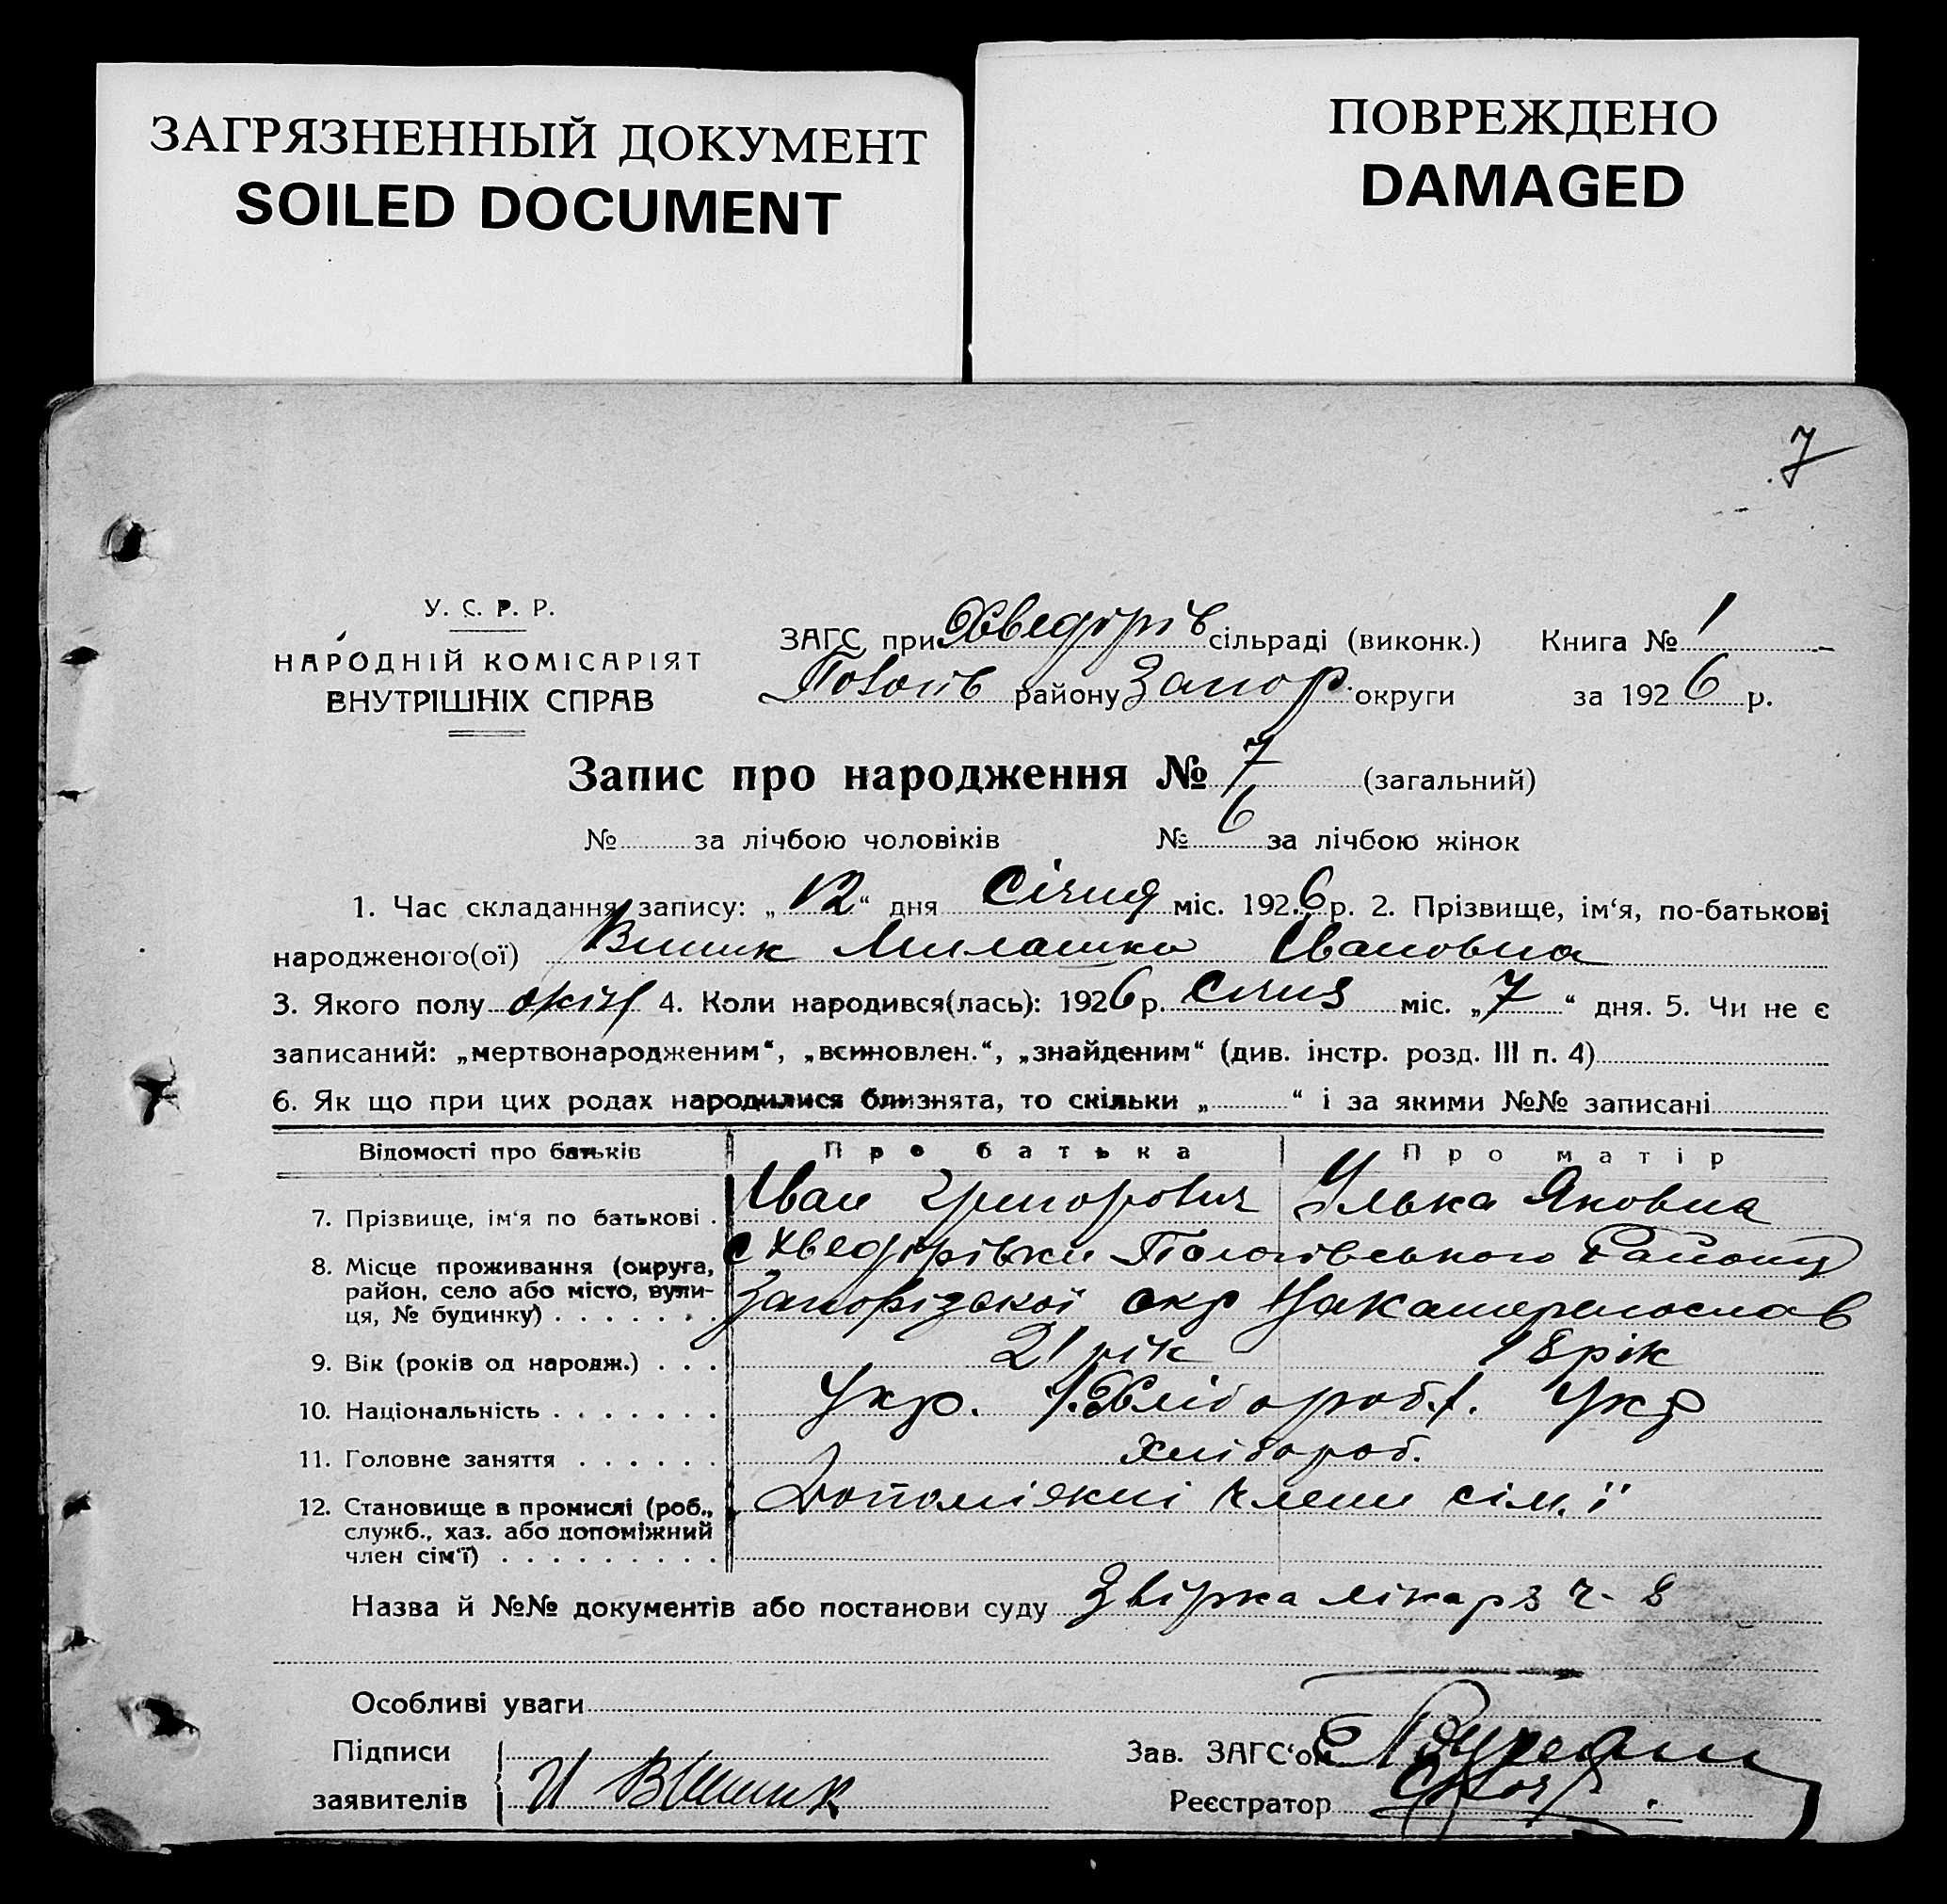 ЗАГРЯЗНЕННЫЙ ДОКУМЕНТ
SOILED DOCUMENT
ПОВРЕЖДЕНО
DAMAGED
7
У. С. Р. Р.
НАРОДНІЙ КОМІСАРІЯТ
ВНУТРІШНІХ СПРАВ
ЗАГС при Хведорів сільраді (виконк.) Книга № 1
Пологів району Запор. округи за 1926 р.
Запис про народження № 7 (загальний)
№ за лічбою чоловіків № 6 за лічбою жінок
1. Час складання запису: „12“ дня Січня міс. 1926 р. 2. Прізвище, ім‘я, по-батькові
народженого(ої) Милашка Івановна
3. Якого полу жіноч 4. Коли народився(лась): 1926 р. Січня міс. „7“ дня. 5. Чи не є
записаний: „мертвонародженим“, „всиновлен.“, „знайденим“ (див. інстр. розд. III п. 4)
6. Як що при цих родах народилися близнята, то скільки „ “ і за якими №№ записані
Відомості про батьків Про батька Про матір
7. Прізвище, ім‘я по батькові . Іван Григорович Улька Яковна
8. Місце проживання (округа, с Хведорівки Пологівського Району
район, село або місто, вули- Запорізької окр
ця, № будинку) . . . . . . .
9. Вік (років од народж.) . . . 21 рік 18 рік
10. Національність . . . . . . . Укр. /Хлібороб./. Укр
11. Головне заняття . . . . . . Хлібороб.
12. Становище в промислі (роб., Допоміжні члени сім.ї
служб., хаз. або допоміжний
член сім‘ї) . . . . . . . . .
Назва й №№ документів або постанови суду Звірка лікаря ч- 8
Особливі уваги
Підписи Зав. ЗАГС‘ом
заявителів И Реєстратор